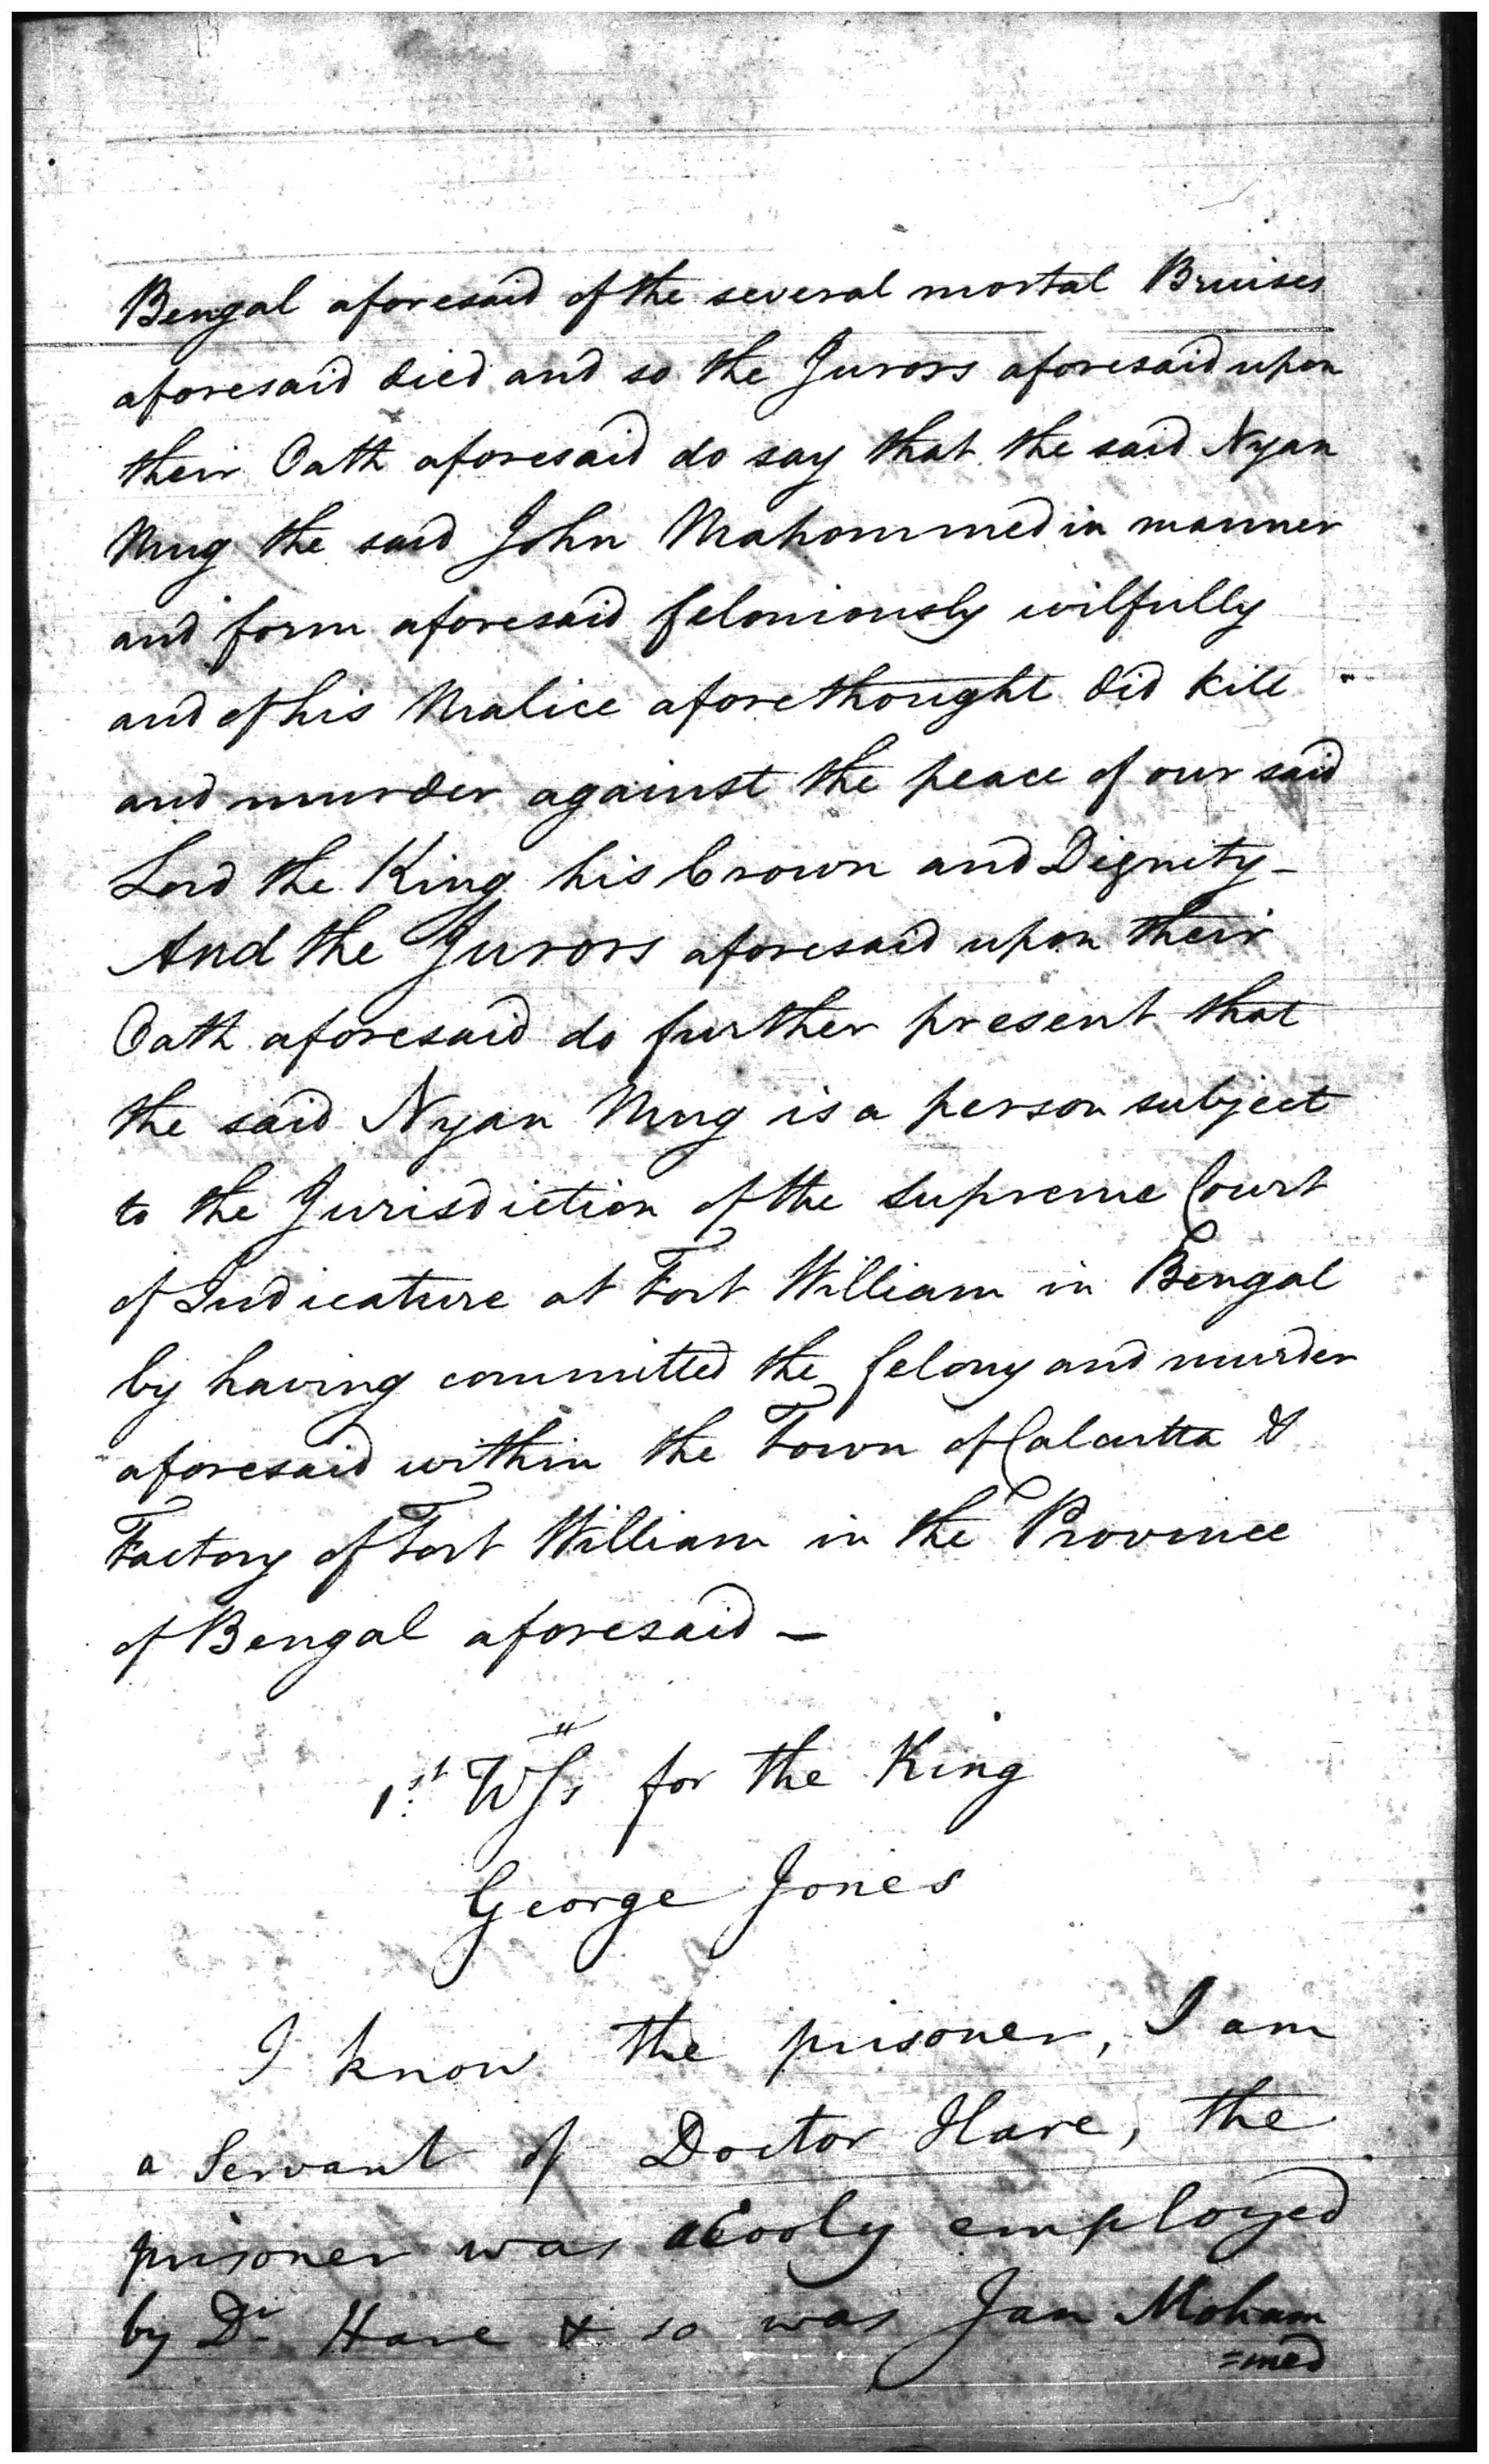 Bengal aforesaid of the several mortal Bruises
aforesaid died and so the Jurors aforesaid upon
their Oath aforesaid do say that the said Nyan
Mug the said John Mahommed in manner
and form aforesaid feloniously wilfully
and of his Malice aforethought did kill
and murder against the peace of our said
Lord the King his Crown and Dignity -
And the Jurors aforesaid upon their
Oath aforesaid do further present that
the said Nyan Mug is a person subject
to the Jurisdiction of the Supreme Court
of Judicature at Fort William in Bengal
by having committed the felony and murder
aforesaid within the Town of Calcutta &
Factory of Fort William in the Province
of Bengal aforesaid —
1st Wss for the King
George Jones
I know the prisoner, I am
a Servant of Doctor Hare, the
prisoner was a Cooly employed
by Dr Hare & so was Jan Moham
=med